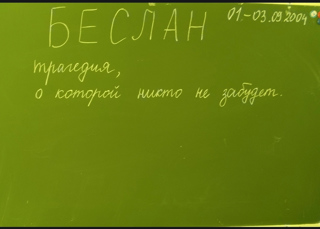 БЕСЛАН 01.-03.09.2004
трагедия,
о которой никто не забудет.